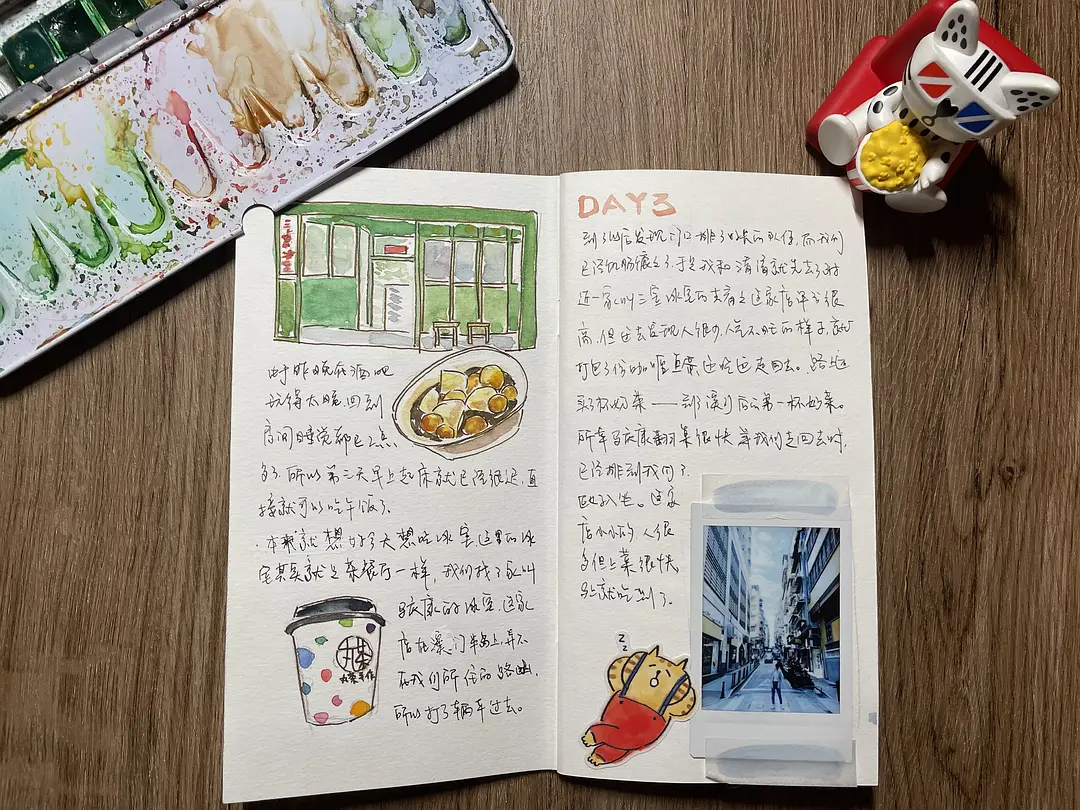 由于昨晚在酒吧
玩得太晚,回到
房间睡觉都已2点
多了.所以第三天早上起床就已经很迟,直
接就可以吃午饭了。
·本来就想好今天想吃冰室,这里的冰
室其实就是茶餐厅一样,我们找了家叫
马庆康的冰室.这家
店在澳门半岛上,并不
在我们所住的路凼,
所以打了辆车过去。
丸茶
丸茶手作
DAY3
到了以后发现门口排了好长的队伍,而我们
已经饥肠辘辘了.于是我和清清就先去了附
近一家叫三宝冰室的去看看,这家店评分很
高,但过去发现人很少,人气不旺的样子,就
打包了份咖喱鱼蛋边吃边走回去。路边
买了杯奶茶——到了澳门后的第一杯奶茶。
所幸马庆康翻桌很快,等我们走回去时,
已经排到我们了.
入坐。这家
店小小的,人很
多但上菜很快,
马上就吃到了.
z
z